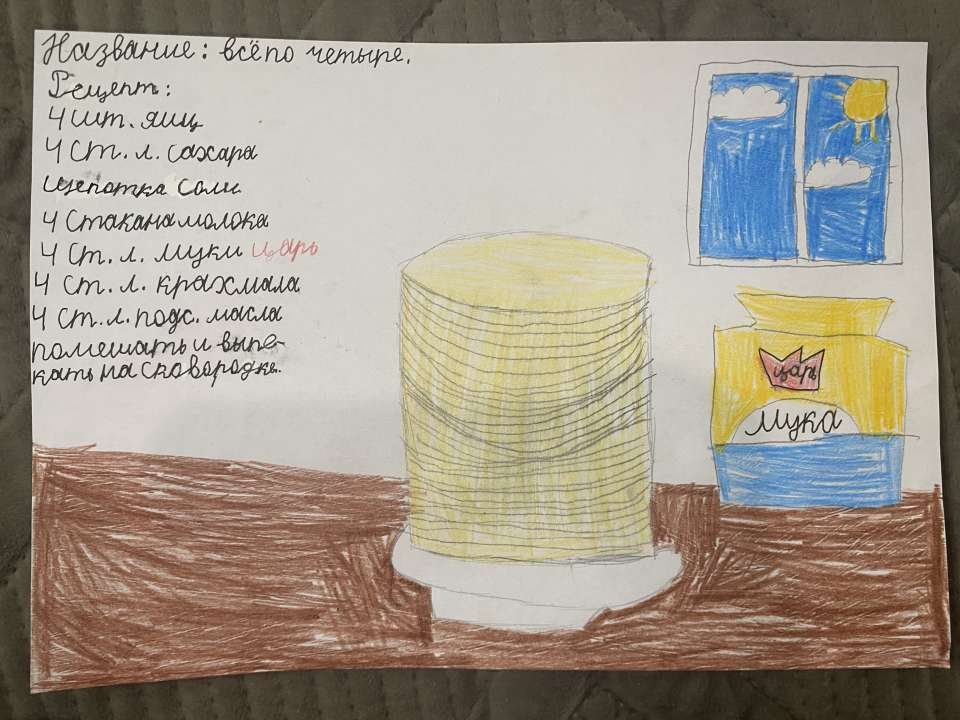 Название: всё по четыре.
Рецепт:
4 шт. яиц
4 ст. л. сахара
щепотка соли
4 стакана молока
4 ст. л. муки царь
4 ст. л. крахмала
4 ст. л. подс. масла
помешать и выпе-
кать на сковородке.
царь
мука